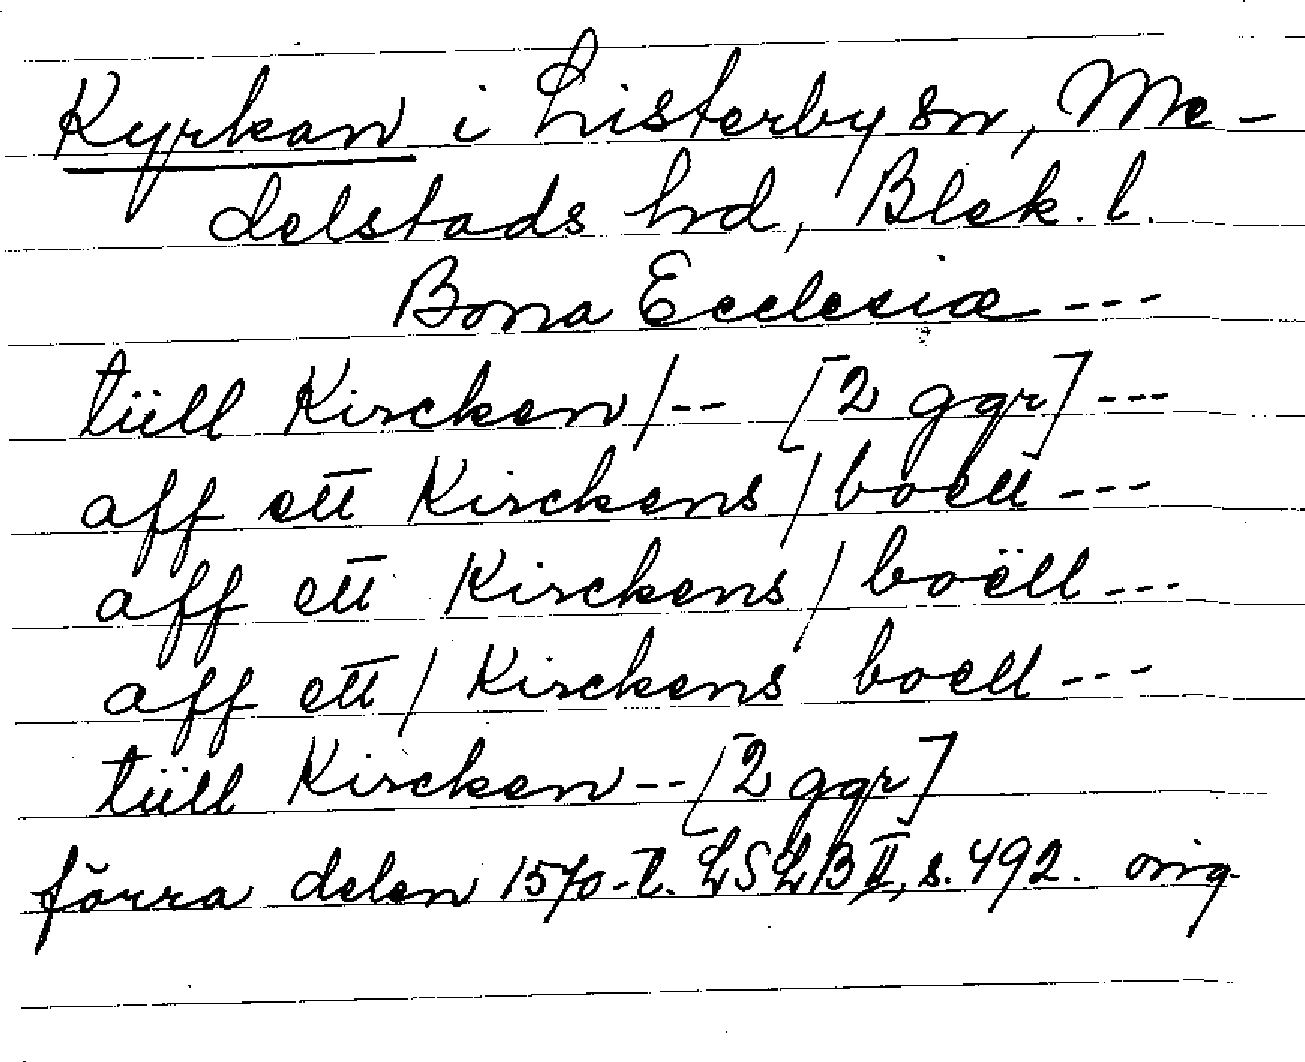 Kyrkan i Listerby sn, Me-
delstads hd, Blek. l.
Bona Ecclesiæ ---
tüll Kircken/-- [2 ggr] ---
aff ett Kirckens / boell ---
aff ett Kirckens / boëll ---
aff ett / Kirckens boell ---
tüll Kircken -- [2 ggr]
förra delen 1570-t. LSLB II, s. 492. orig.